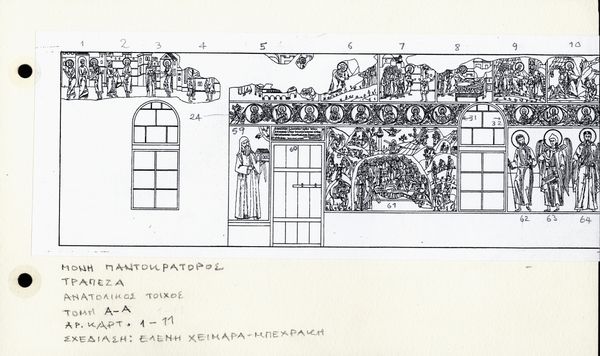 1 2 3 4 5 6 7 8 9 10
24 59 60 61 62 63 64
ΜΟΝΗ ΠΑΝΤΟΚΡΑΤΟΡΟΣ
ΤΡΑΠΕΖΑ
ΑΝΑΤΟΛΙΚΟΣ ΤΟΙΧΟΣ
ΤΟΜΗ Α-Α
ΑΡ. ΚΑΡΤ. 1-11
ΣΧΕΔΙΑΣΗ: ΕΛΕΝΗ ΧΕΙΜΑΡΑ-ΜΠΕΧΡΑΚΗ